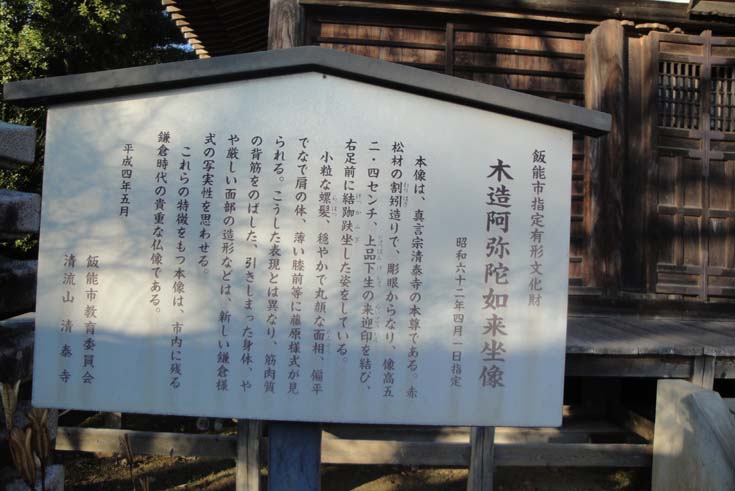 飯能市指定有形文化財
木造阿弥陀如来坐像
昭和六十二年四月一日指定
本像は、真言宗清泰寺の本尊である。赤
松材の割矧造りで、彫眼からなり、像高五
二・四センチ、上品下生の来迎印を結び、
右足前に結跏趺坐した姿をしている。
小粒な螺髪、穏やかで丸顔な面相、偏平
でなで肩の体、薄い膝前等に藤原様式が見
られる。こうした表現とは異なり、筋肉質
の背筋をのばした、引きしまった身体、や
や厳しい面部の造形などは、新しい鎌倉様
式の写実性を思わせる。
これらの特徴をもつ本像は、市内に残る
鎌倉時代の貴重な仏像である。
平成四年五月
飯能市教育委員会
清流山 清泰寺